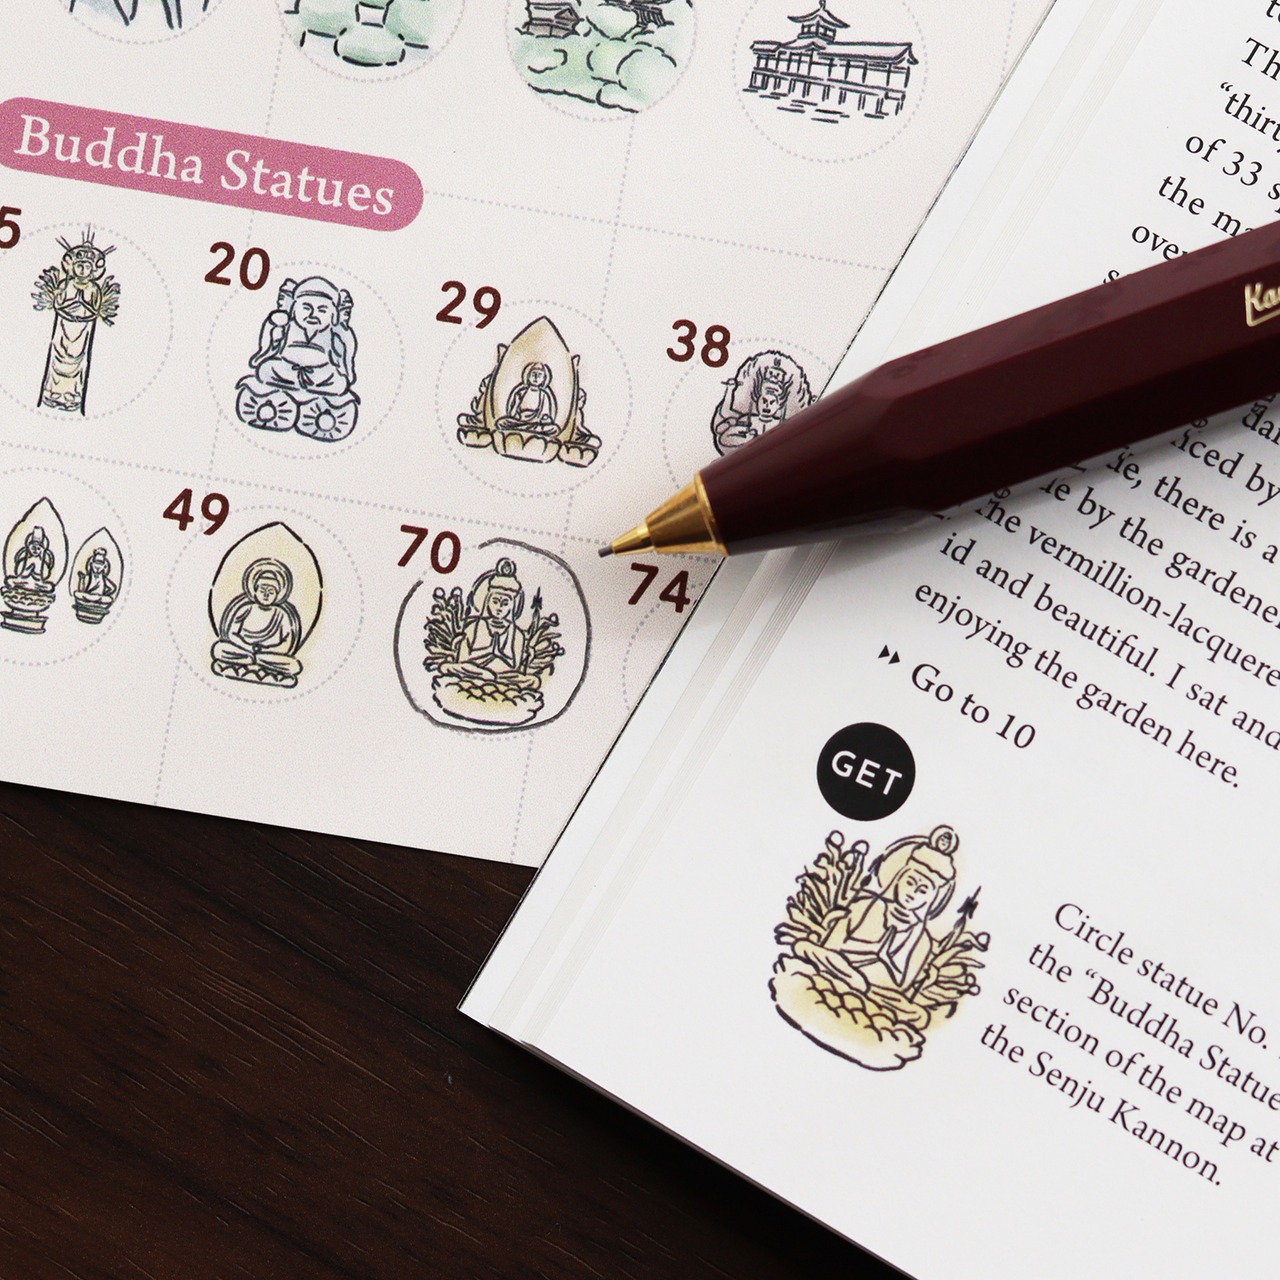 Buddha Statues
5
20
29
38
49
70
74
Th
of 33
the
iced by
there is a
by the gardene
the vermillion-lacquere
id and beautiful. I sat and
enjoying the garden here.
Go to 10
GET
Circle statue No.
the "Buddha Statue
section of the map at
the Senju Kannon.